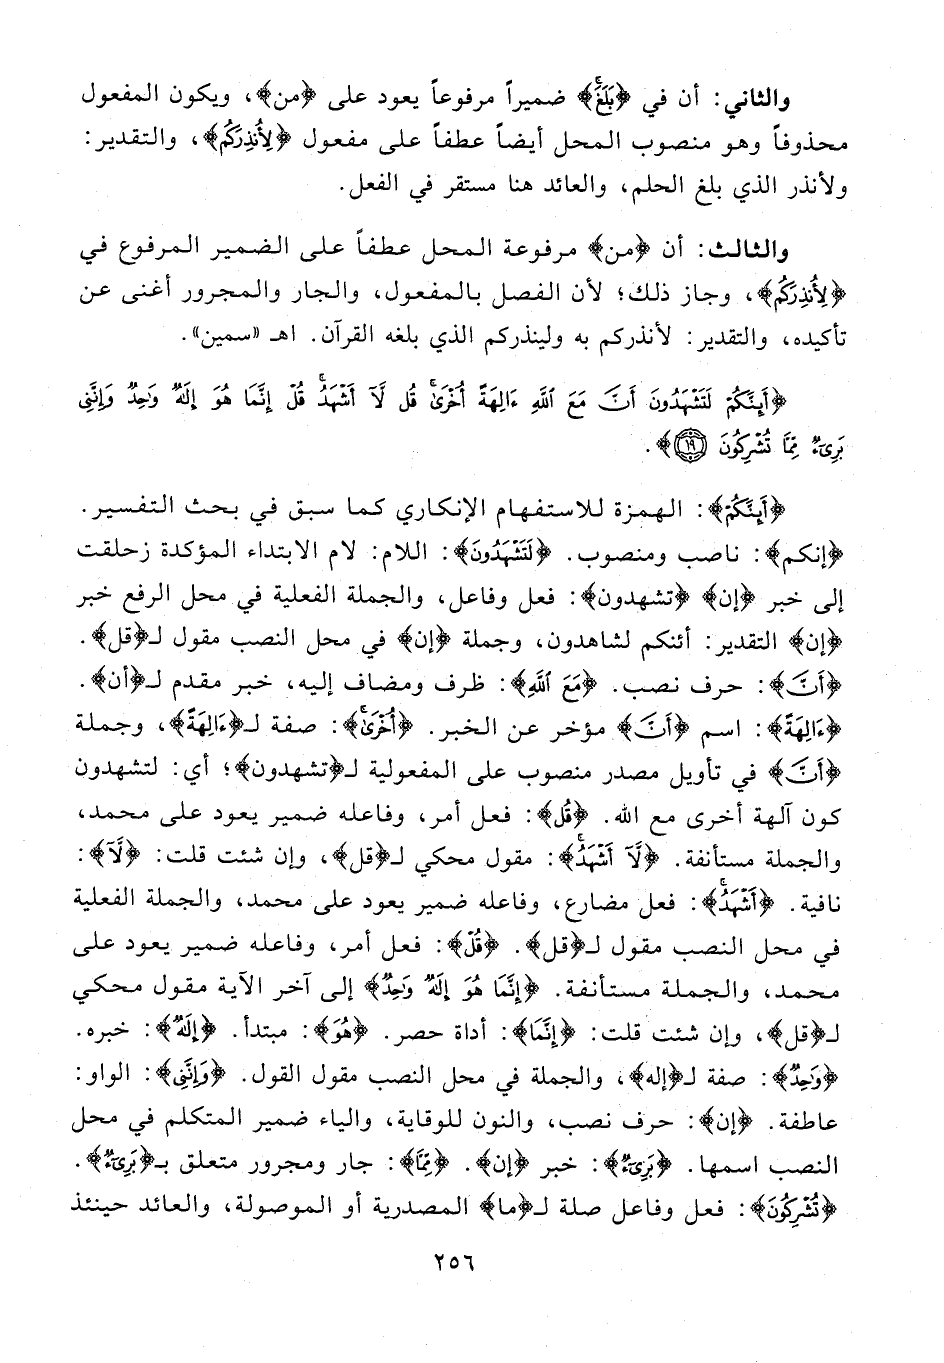 والثاني: أن في ﴿بَلَغَۚ﴾ ضميراً مرفوعاً يعود على ﴿من﴾، ويكون المفعول
محذوفاً وهو منصوب المحل أيضاً عطفاً على مفعول ﴿لِأُنذِرَكُم﴾، والتقدير:
ولأنذر الذي بلغ الحلم، والعائد هنا مستقر في الفعل.
والثالث: أن ﴿من﴾ مرفوعة المحل عطفاً على الضمير المرفوع في
﴿لِأُنذِرَكُم﴾، وجاز ذلك؛ لأن الفصل بالمفعول، والجار والمجرور أغنى عن
تأكيده، والتقدير: لأنذركم به ولينذركم الذي بلغه القرآن. اهـ «سمين».
﴿أَئِنَّكُمْ لَتَشْهَدُونَ أَنَّ مَعَ ٱللَّهِ ءَالِهَةً أُخْرَىٰۚ قُل لَّآ أَشْهَدُۚ قُلْ إِنَّمَا هُوَ إِلَٰهٌ وَٰحِدٌ وَإِنَّنِى
بَرِىٓءٌ مِّمَّا تُشْرِكُونَ ١٩﴾.
﴿أَئِنَّكُمْ﴾: الهمزة للاستفهام الإنكاري كما سبق في بحث التفسير.
﴿إنكم﴾: ناصب ومنصوب. ﴿لَتَشْهَدُونَ﴾: اللام: لام الابتداء المؤكدة زحلقت
إلى خبر ﴿إن﴾ ﴿تشهدون﴾: فعل وفاعل، والجملة الفعلية في محل الرفع خبر
﴿إن﴾ التقدير: أئنكم لشاهدون، وجملة ﴿إن﴾ في محل النصب مقول لـ﴿قل﴾.
﴿أَنَّ﴾: حرف نصب. ﴿مَعَ ٱللَّهِ﴾: ظرف ومضاف إليه، خبر مقدم لـ﴿أن﴾.
﴿ءَالِهَةً﴾: اسم ﴿أَنَّ﴾ مؤخر عن الخبر. ﴿أُخْرَىٰۚ﴾: صفة لـ﴿ءَالِهَةً﴾، وجملة
﴿أَنَّ﴾ في تأويل مصدر منصوب على المفعولية لـ﴿تشهدون﴾؛ أي: لتشهدون
كون آلهة أخرى مع الله. ﴿قُل﴾: فعل أمر، وفاعله ضمير يعود على محمد،
والجملة مستأنفة. ﴿لَّآ أَشْهَدُۚ﴾: مقول محكي لـ﴿قل﴾، وإن شئت قلت: ﴿لَّآ﴾:
نافية. ﴿أَشْهَدُۚ﴾: فعل مضارع، وفاعله ضمير يعود على محمد، والجملة الفعلية
في محل النصب مقول لـ﴿قل﴾. ﴿قُلْ﴾: فعل أمر، وفاعله ضمير يعود على
محمد، والجملة مستأنفة. ﴿إِنَّمَا هُوَ إِلَٰهٌ وَٰحِدٌ﴾ إلى آخر الآية مقول محكي
لـ﴿قل﴾، وإن شئت قلت: ﴿إِنَّمَا﴾: أداة حصر. ﴿هُوَ﴾: مبتدأ. ﴿إِلَٰهٌ﴾: خبره.
﴿وَٰحِدٌ﴾: صفة لـ﴿إله﴾، والجملة في محل النصب مقول القول. ﴿وَإِنَّنِى﴾: الواو:
عاطفة. ﴿إن﴾: حرف نصب، والنون للوقاية، والياء ضمير المتكلم في محل
النصب اسمها. ﴿بَرِىٓءٌ﴾: خبر ﴿إن﴾. ﴿مِّمَّا﴾: جار ومجرور متعلق بـ﴿بَرِىٓءٌ﴾.
﴿تُشْرِكُونَ﴾: فعل وفاعل صلة لـ﴿ما﴾ المصدرية أو الموصولة، والعائد حينئذ
٢٥٦